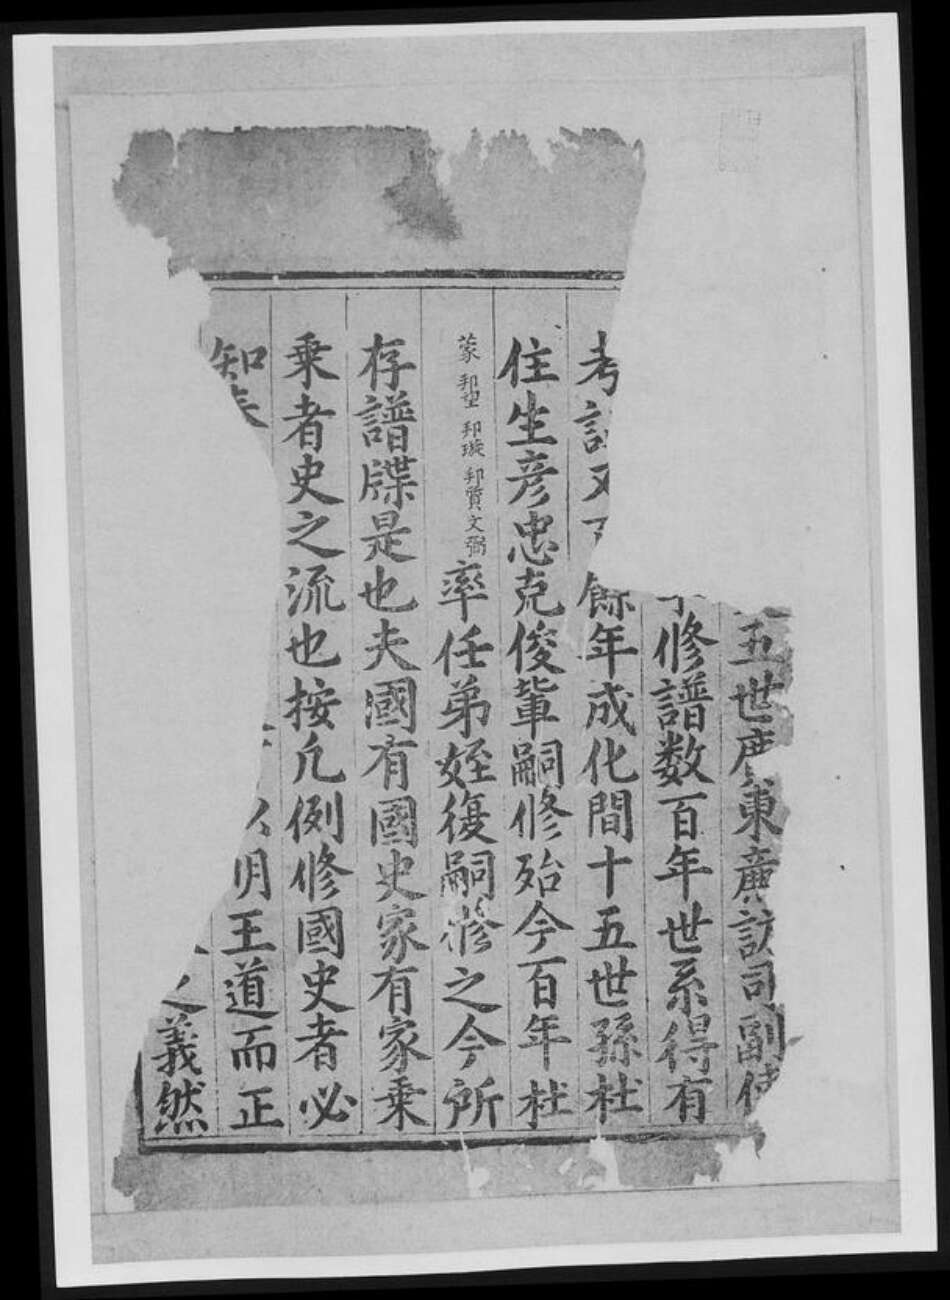 五世廣東廉訪司副使
修譜数百年世系得有
考訂又百餘年成化間十五世孫杜
住生彦忠克俊軰嗣修殆今百年杜
蒙 邦望 邦璇 邦質 文弼 率任弟姪復嗣修之今所
存譜牒是也夫國有國史家有家乗
乗者史之流也按凢例修國史者必
知春 以明王道而正
之義然